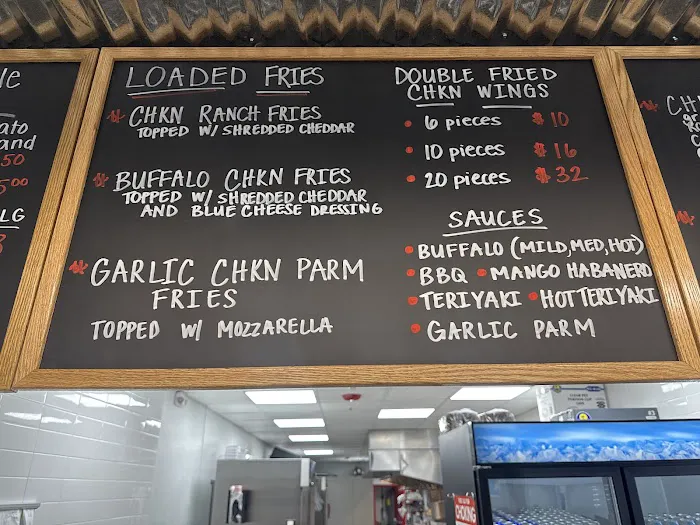 ato
and
50
5.00
LG
LOADED FRIES
CHKN RANCH FRIES
TOPPED W/ SHREDDED CHEDDAR
BUFFALO CHKN FRIES
TOPPED W/ SHREDDED CHEDDAR
AND BLUE CHEESE DRESSING
GARLIC CHKN PARM
FRIES
TOPPED W/ MOZZARELLA
DOUBLE FRIED
CHKN WINGS
• 6 pieces $10
• 10 pieces $16
• 20 pieces $32
SAUCES
• BUFFALO (MILD, MED, HOT)
• BBQ • MANGO HABANERO
• TERIYAKI • HOT TERIYAKI
• GARLIC PARM
CH
CHOKING